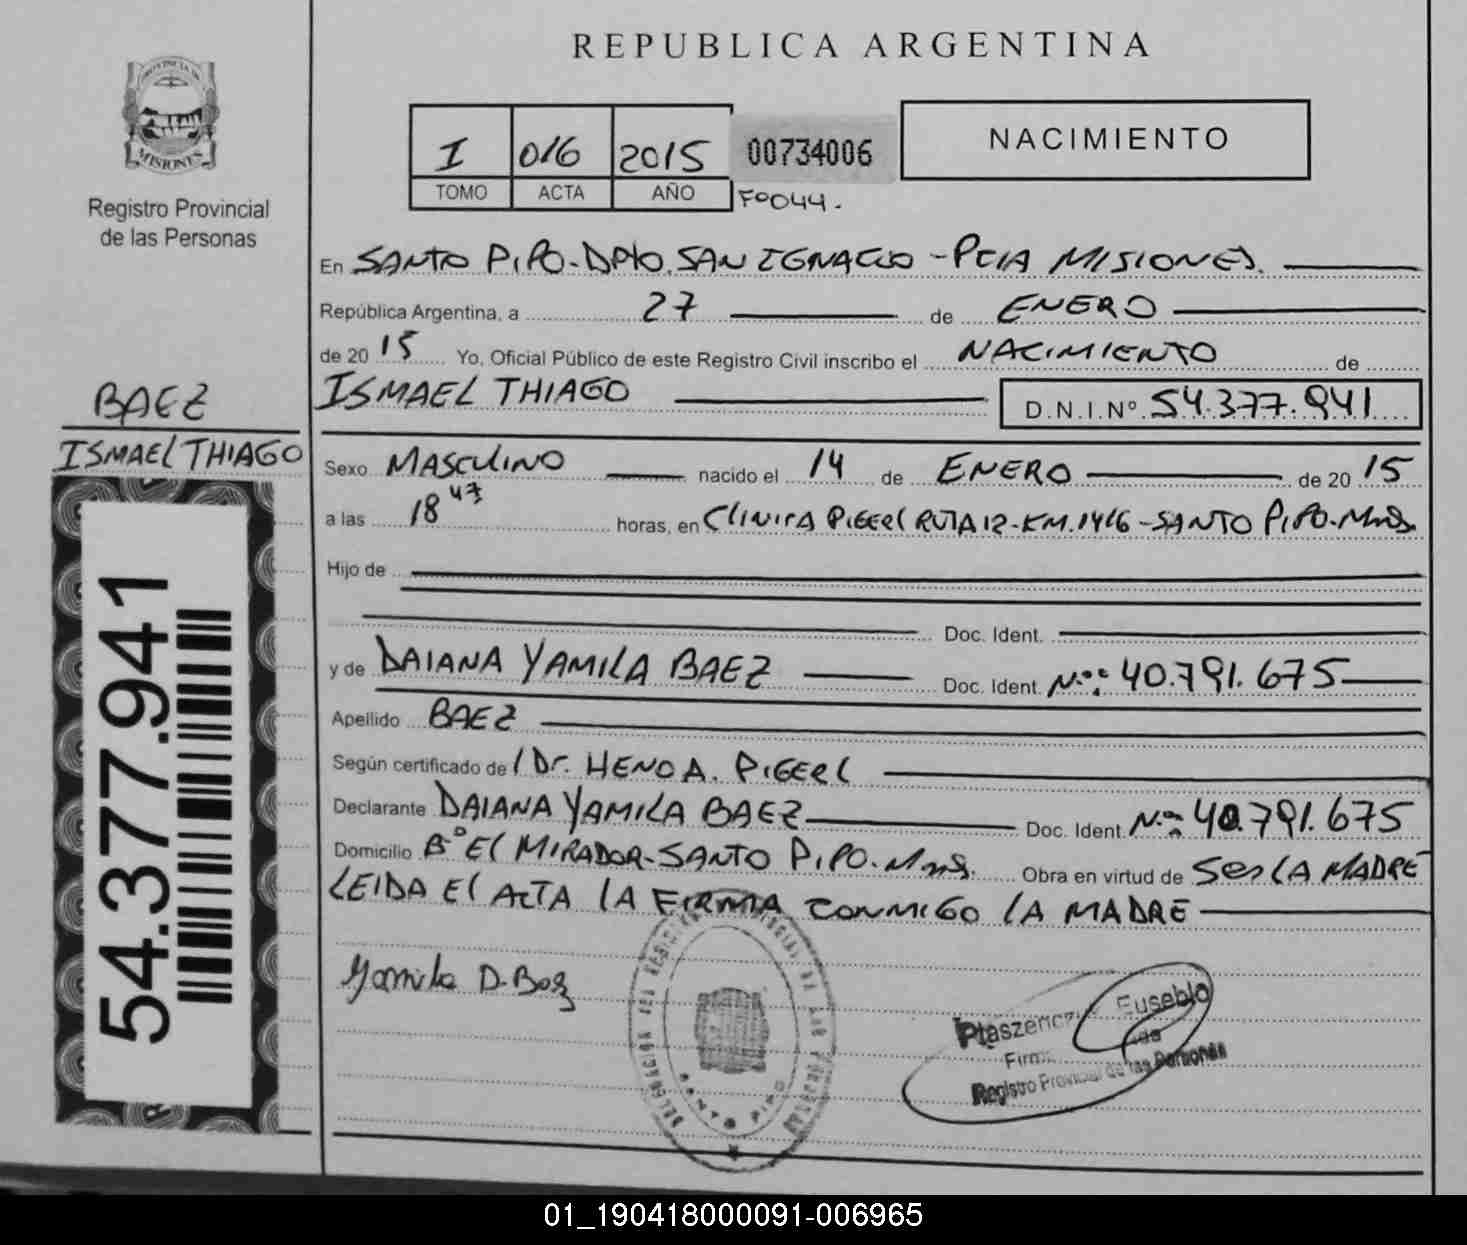 REPUBLICA ARGENTINA
PROVINCIA DE
MISIONES
Registro Provincial
de las Personas
I 016 2015 00734006 NACIMIENTO
TOMO ACTA AÑO Fº044.
En SANTO PIPO-DPTO. SAN IGNACIO - PCIA MISIONES.
República Argentina, a 27 de ENERO
de 2015 Yo, Oficial Público de este Registro Civil inscribo el NACIMIENTO de
ISMAEL THIAGO D.N.I.Nº. 54.377.941
BAEZ
ISMAEL THIAGO
Sexo MASCULINO nacido el 14 de ENERO de 2015
a las 18 47 horas, en CLINICA PIGERL RUTA 12-KM.1416-SANTO PIPO-Mnes.
Hijo de
Doc. Ident.
y de DAIANA YAMILA BAEZ Doc. Ident. Nº: 40.791.675
Apellido BAEZ
Según certificado de l Dr. HENO A. PIGERL
Declarante DAIANA YAMILA BAEZ Doc. Ident. Nº: 40.791.675
Domicilio Bº El MIRADOR-SANTO PIPO-Mnes. Obra en virtud de SER LA MADRE
LEIDA El ACTA LA FIRMA CONMIGO LA MADRE
Yamila D. Baez
54.377.941
DELEGACION DEL REGISTRO PROVINCIAL DE LAS PERSONAS
SANTO PIPO
Eusebio
Registro Provincial de las Personas
01_190418000091-006965